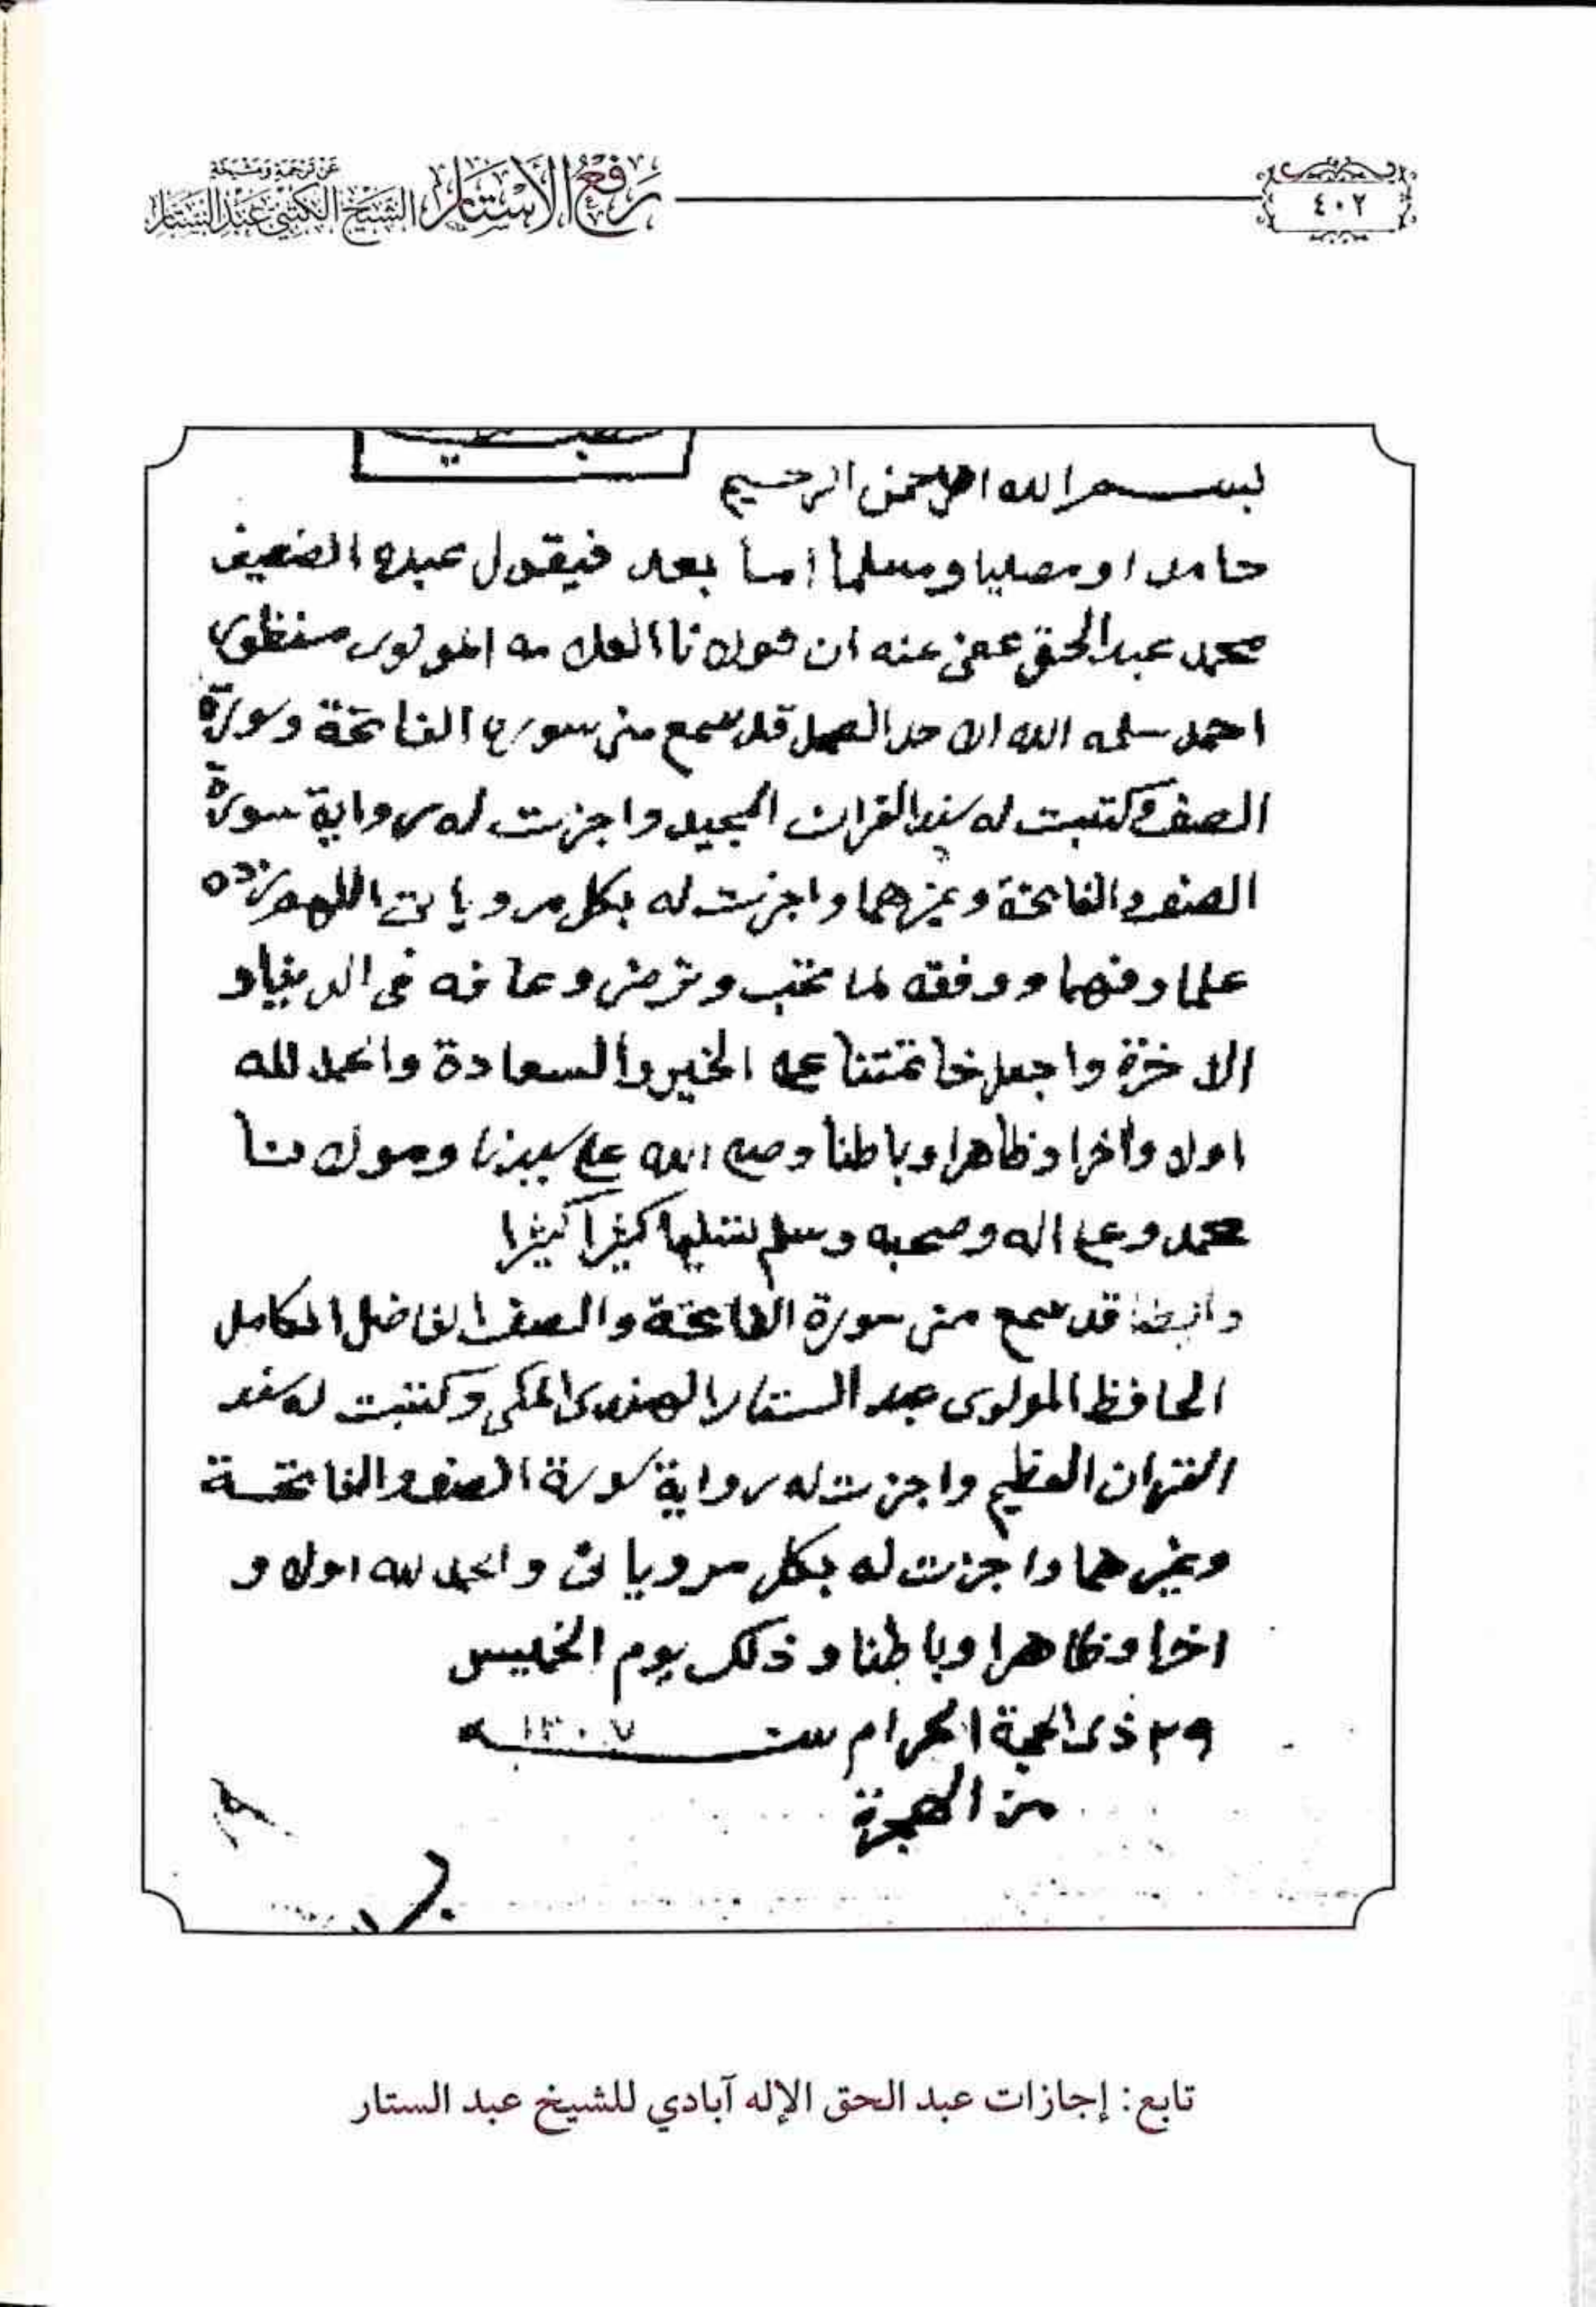 ٤٠٢
رفع الأستار
عن ترجمة ومشيخة
الشيخ الكتبي عبد الستار
بسم الله الرحمن الرحيم
حامدا ومصليا ومسلما اما بعد فيقول عبده الضعيف
محمد عبد الحق عفى عنه ان مولانا العلامه المولوى منظور
احمد سلمه الله الاحد الصمد قد سمع منى سورة الفاتحة وسورة
الصف وكتبت له سند القران المجيد واجزت له رواية سورة
الصف والفاتحة وغيرهما واجزت له بكل مروياتى اللهم زده
علما وفهما ووفقه لما تحب وترضى وعافه فى الدنيا و
الاخرة واجعل خاتمتنا على الخير والسعادة والحمد لله
اولا وآخرا وظاهرا وباطنا وصلى الله على سيدنا ومولانا
محمد وعلى اله وصحبه وسلم تسليما كثيرا كثيرا
وايضا قد سمع منى سورة الفاتحة والصف الفاضل الكامل
الحافظ المولوى عبد الستار الهندى المكى وكتبت له سند
القران العظيم واجزت له رواية سورة الصف والفاتحة
وغيرهما واجزت له بكل مروياتى والحمد لله اولا و
اخرا وظاهرا وباطنا وذلك يوم الخميس
٢٩ ذى الحجة الحرام سنة ١٣٠٧ ه
من الهجرة
تابع: إجازات عبد الحق الإله آبادي للشيخ عبد الستار